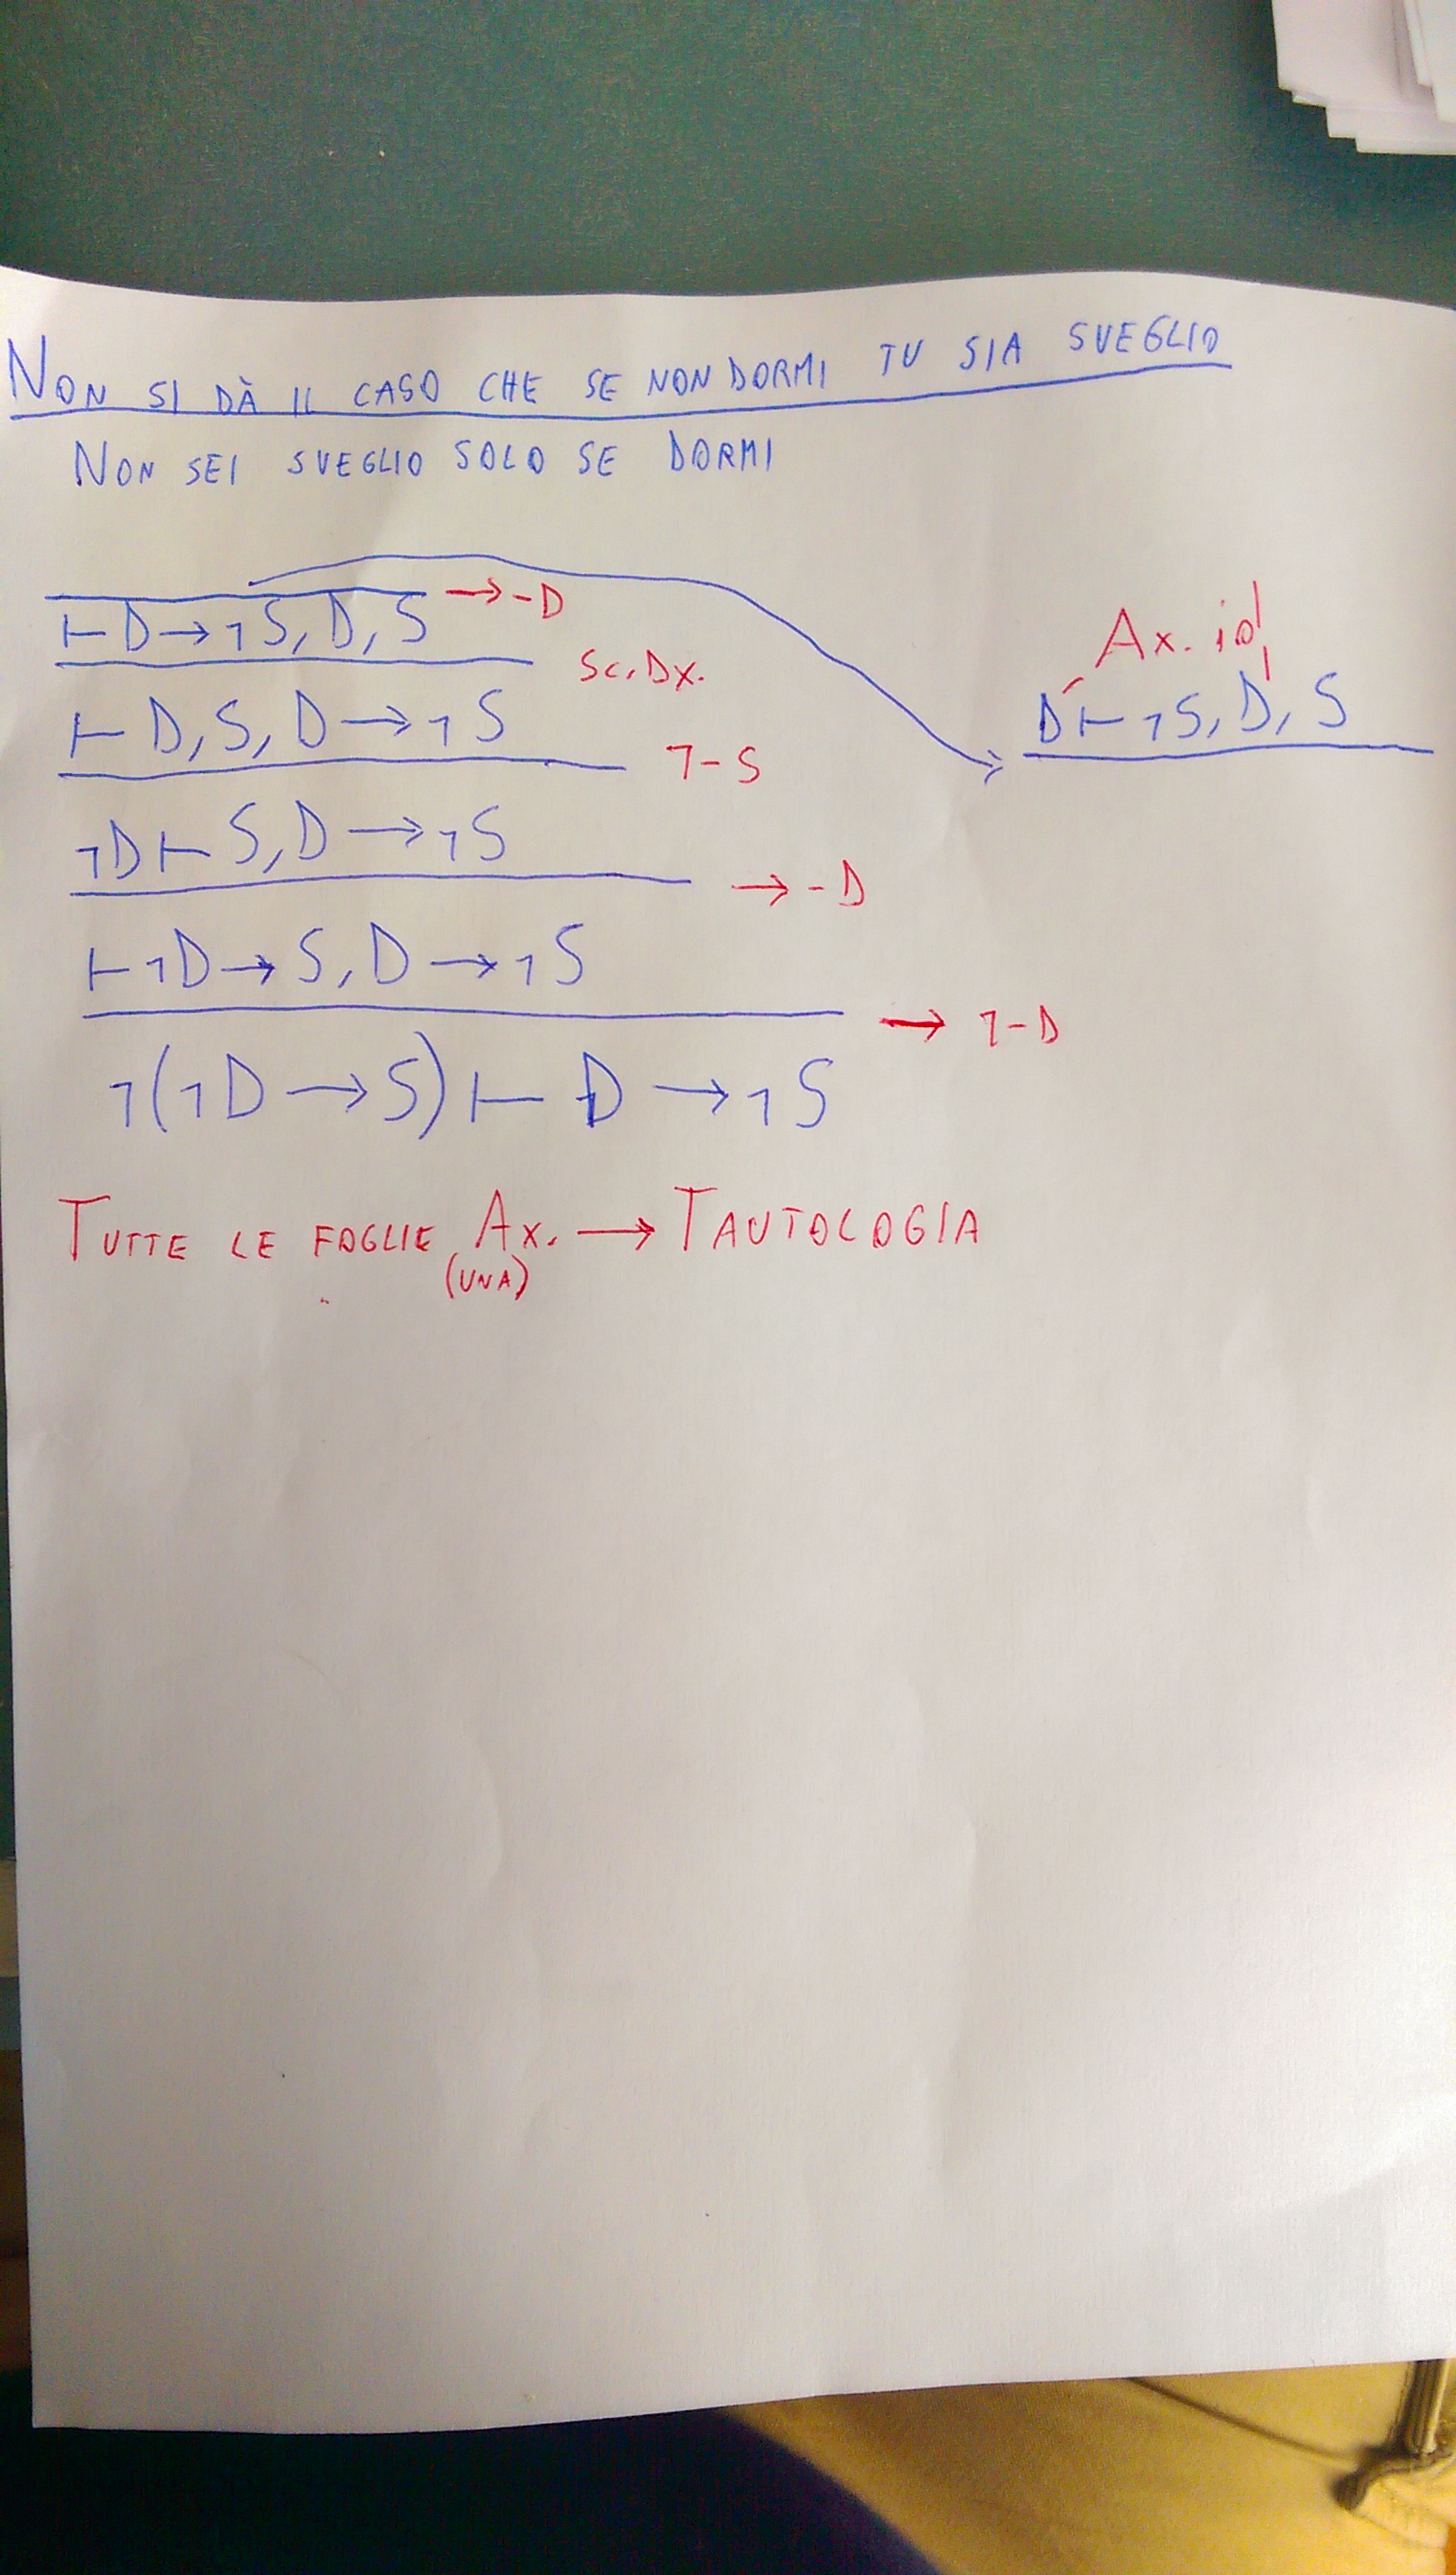 NON SI DÀ IL CASO CHE SE NON DORMI TU SIA SVEGLIO
NON SEI SVEGLIO SOLO SE DORMI
⊢ D → ¬S, D, S → -D
Sc. Dx.
⊢ D, S, D → ¬S
¬-S
¬D ⊢ S, D → ¬S
→ -D
⊢ ¬D → S, D → ¬S
→ ¬-D
¬(¬D → S) ⊢ D → ¬S
Ax. id
D ⊢ ¬S, D, S
TUTTE LE FOGLIE AX. → TAUTOLOGIA
(UNA)